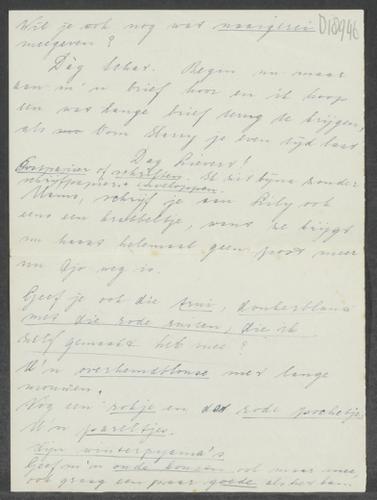 Wil je ook nog wat naaigerei D12946
meegeven?
Dàg schat. Begin nu maar
aan m'n brief hoor en ik hoop
een wat lange brief terug te krijgen,
als Oom Harry je even tijd laat
Dag Lieverd!
Postpapier of schriften. Ik zit bijna zonder
schrijfpapier + enveloppen.
Mams, schrijf je aan Lily ook
eens een krabbeltje, want ze krijgt
nu haast helemaal geen post meer
nu Ajo weg is.
Geef je ook die trui, donkerblauw
met die rode ruiten, die ik
zelf gemaakt heb mee?
M'n overhemdblouse met lange
mouwen.
Nog een rokje en dat rode pochetje.
M'n pareltjes.
Mijn winterpyjama's
Geef m'n oude kousen ook maar mee,
ook graag een paar goede als het kan.